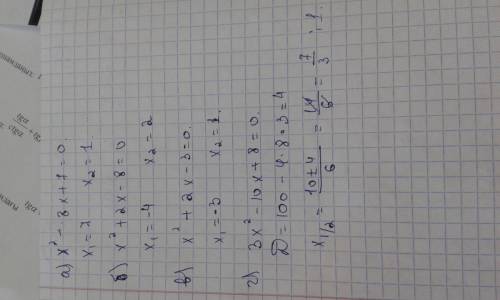 а) x² - 8x + 7 = 0.
x₁ = 7 x₂ = 1.
б) x² + 2x - 8 = 0
x₁ = -4 x₂ = 2
в) x² + 2x - 3 = 0.
x₁ = -3 x₂ = 1.
г) 3x² - 10x + 8 = 0.
D = 100 - 4·8·3 = 4
x₁/₂ = (10 ± 4)/6 = 14/6 = 7/3 ; 1.